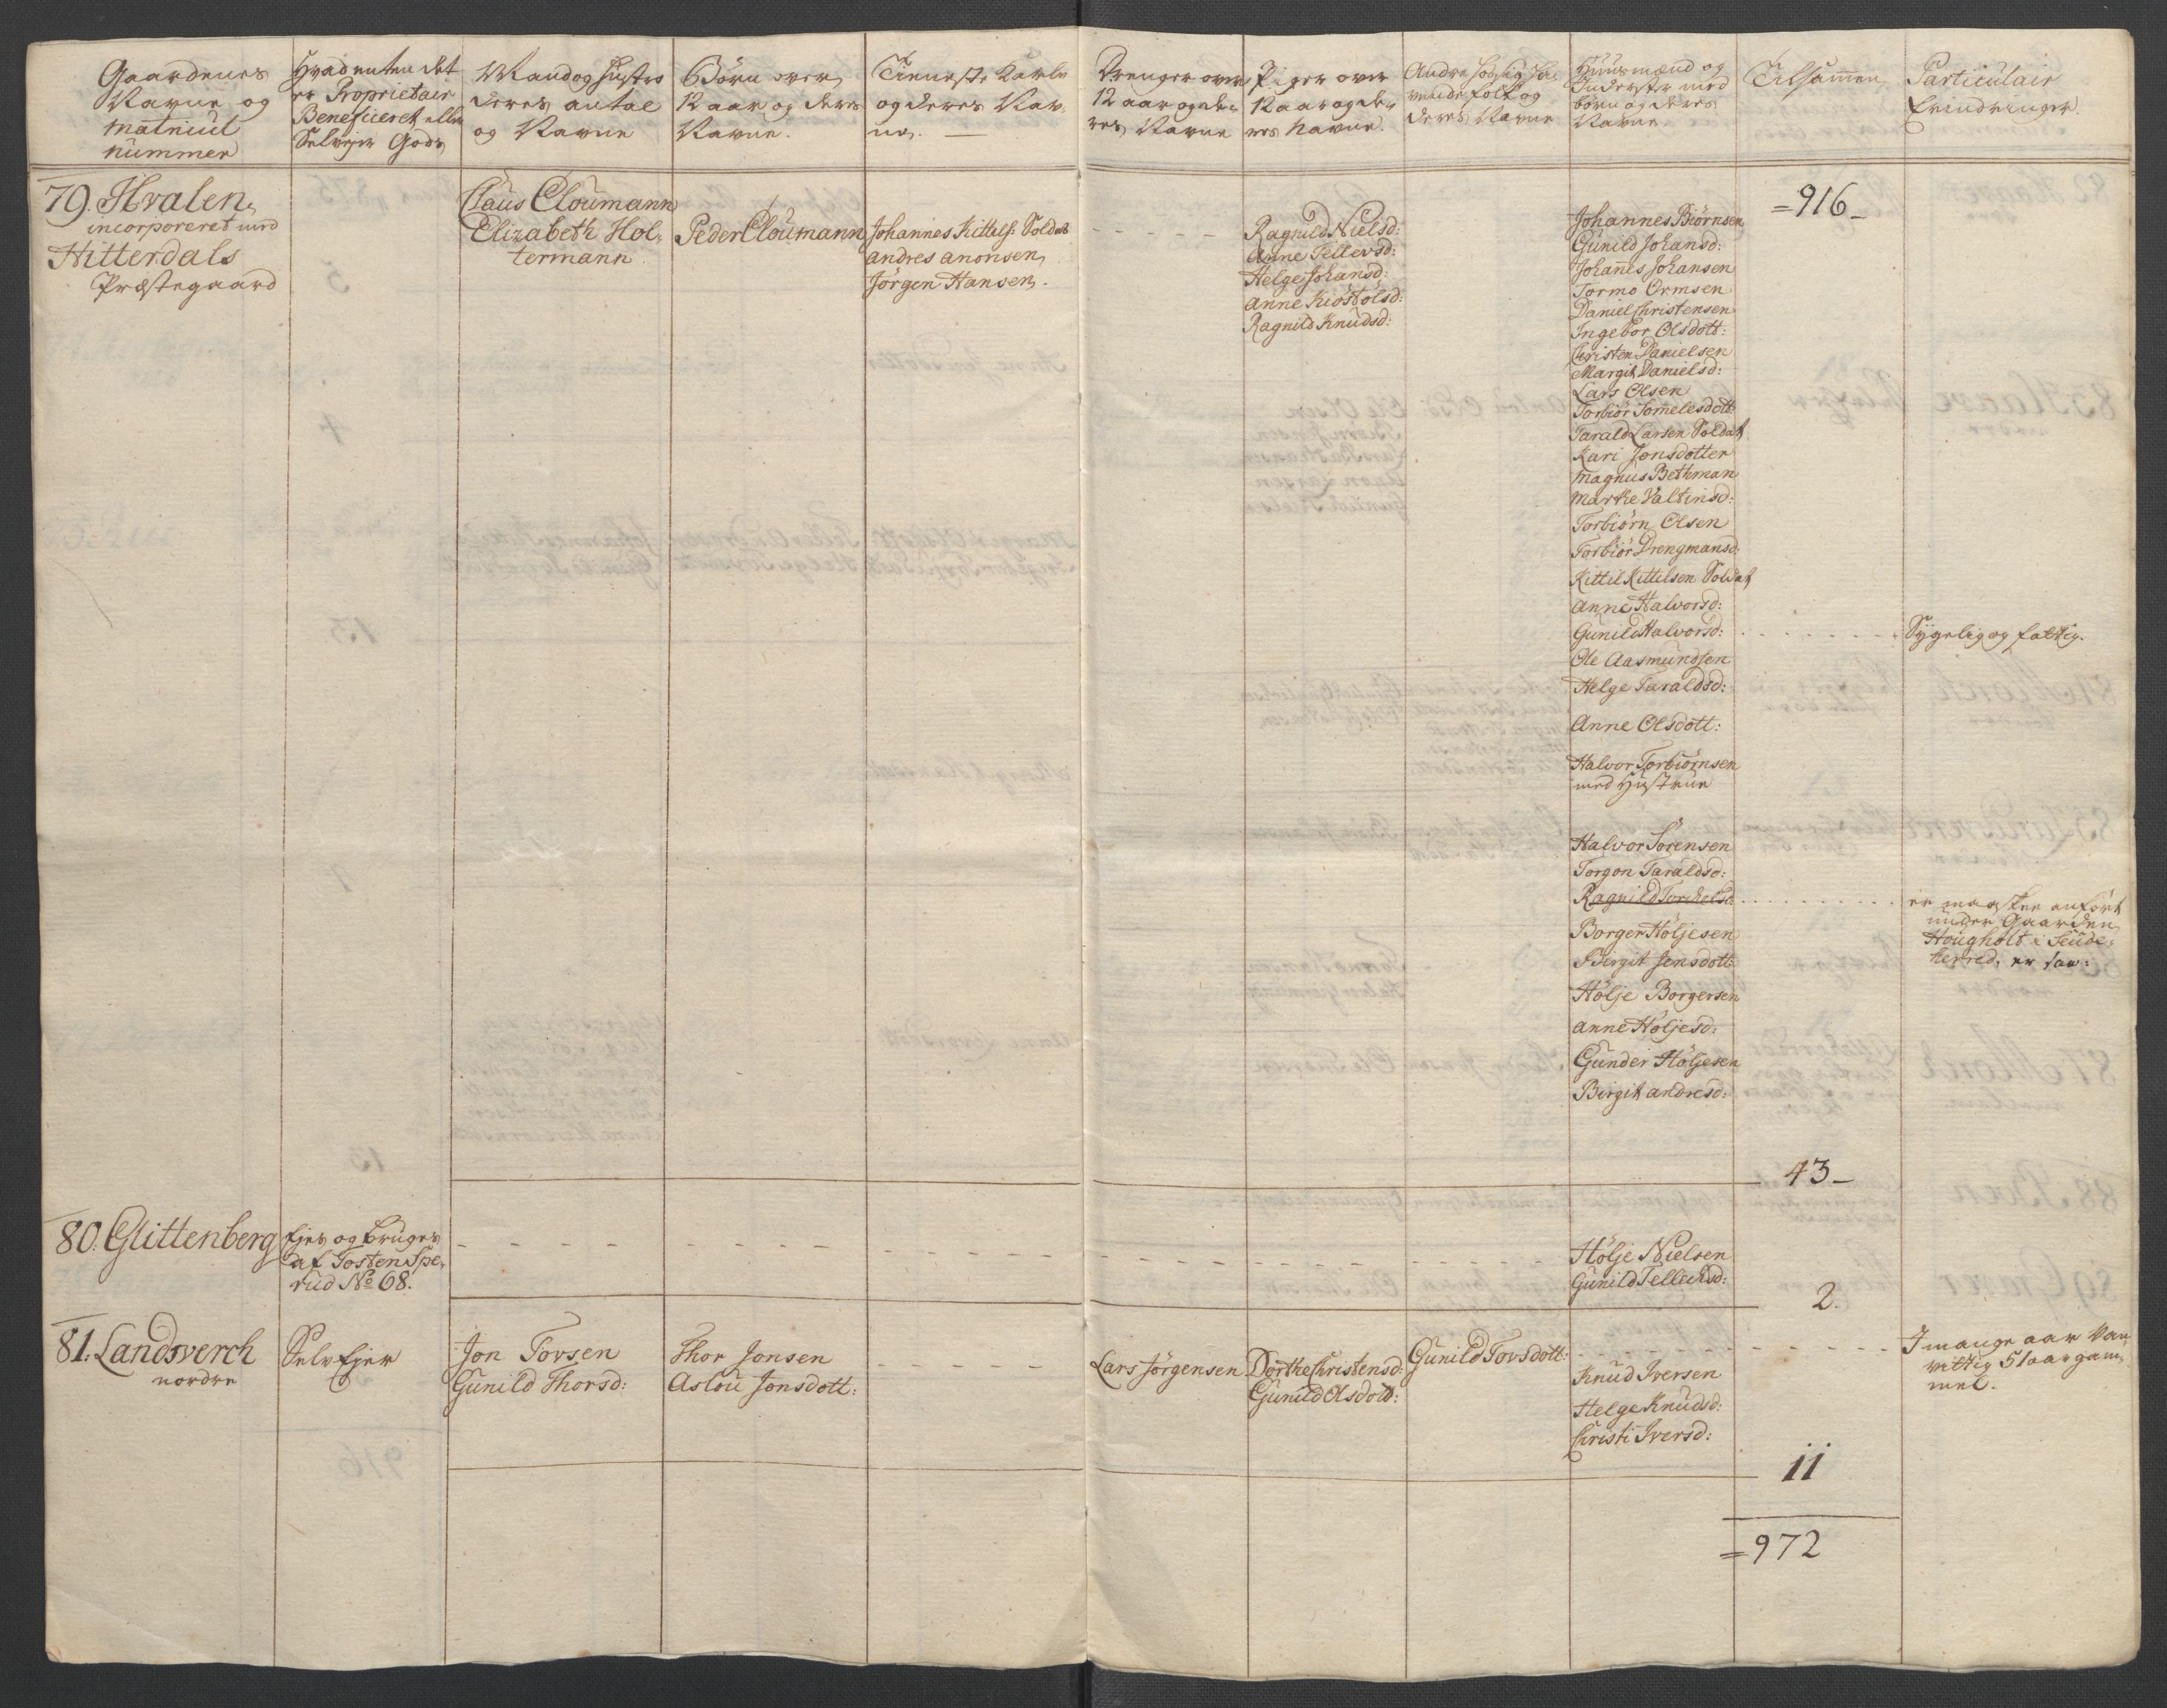 Gaardenes
Navne og
matricul
nummer
Hvad enten det
er Proprietair
Beneficeret eller
Selvejer Gods
Mand og Hustro
deres antal
og Navne
Börn over
12 aar og deres
Navne.
Tieneste Karle
og deres Nav-
ne.
Drenger over
12 aar og de-
res Navne
Piger over
12 aar og de-
res Navne.
Andre
folk og
deres Navne
Huusmænd og
Inderster med
börn og deres
Navne
Tilsamen
Particulair
Erindringer.
79. Hvalen
incorporeret med
Hitterdals
Præstegaard
Claus Cloumann
Elizabeth Hol-
termann
Peder Cloumann
Johannes Kittels: Soldat
andres anonsen
Jörgen Hansen.
Ragnild Nielsd:
Anne Tellevsd:
Helge Johansd:
Anne Kiöstolsd:
Ragnild Knudsd:
=916-
Johannes Biörnsen
Gunild Johansd:
Johanes Johansen
Tormo Ormsen
Daniel Christensen
Ingebor Olsdott:
Christen Danielsen
Margit Danielsd:
Lars Olsen
Torbiör Tomelesdott:
Tarald Larsen Soldat
Kari Jonsdotter
Magnus Bethman
Marthe Valtinsd:
Torbiörn Olsen
Torbiör Drengmansd:
Kittil Kittilsen Soldat
Anne Halvorsd:
Gunild Halvorsd:
Sygelig og fattig.
Ole Aasmundsen
Helge Taraldsd:
Anne Olsdott:
Halvor Torbiörnsen
med Hustrue
Halvor Sörensen
Torgon Taraldsd:
Ragnild Torchelsd:
er maaskee anfört
under Gaarden
Hougholt i
herred. er saa:
Borger Höljesen
Birgit Jensdott:
Hölje Borgersen
Anne Höljesd:
Gunder Höljesen
Birgit andresd:
43-
80. Glittenberg
Ejes og bruges
af Tosten Spe-
rud No 68.
Hölje Nielsen
Gunild Tellechsd:
2.
81. Landsverch
nordre
Selv Ejer
Jon Torsen
Gunild Thorsd:
Thor Jonsen
Aslou Jonsdott:
Lars Jörgensen
Dorthe Christensd:
Gunild Olsdott:
Gunild Tovsdott:
Knud Iversen
Helge Knudsd:
Christi Iversd:
I mange aar Van-
vittig 51 aar gam-
mel.
11
=972